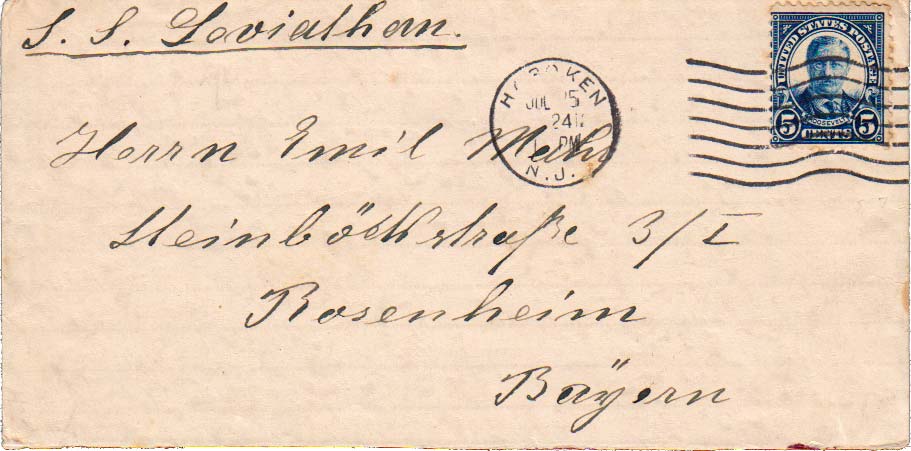 S. S. Leviathan.
HOBOKEN
JUL 25
24
PM
N.J.
UNITED STATES POSTAGE
ROOSEVELT
5 CENTS 5
Herrn Emil
Steinbökstraße 3/I
Rosenheim
Bayern